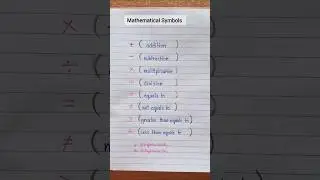 Mathematical Symbols
+ ( addition )
- ( subtraction )
× ( multiplication )
÷ ( division )
= ( equals to )
≠ ( not equals to )
( greater than equals to )
( less than equals to )